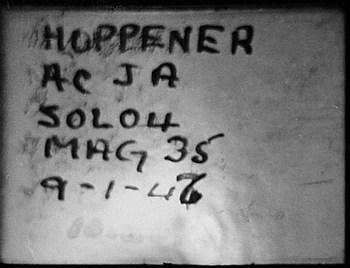 HOPPENER
Ac J A
SOLO4
MAG 35
9-1-46